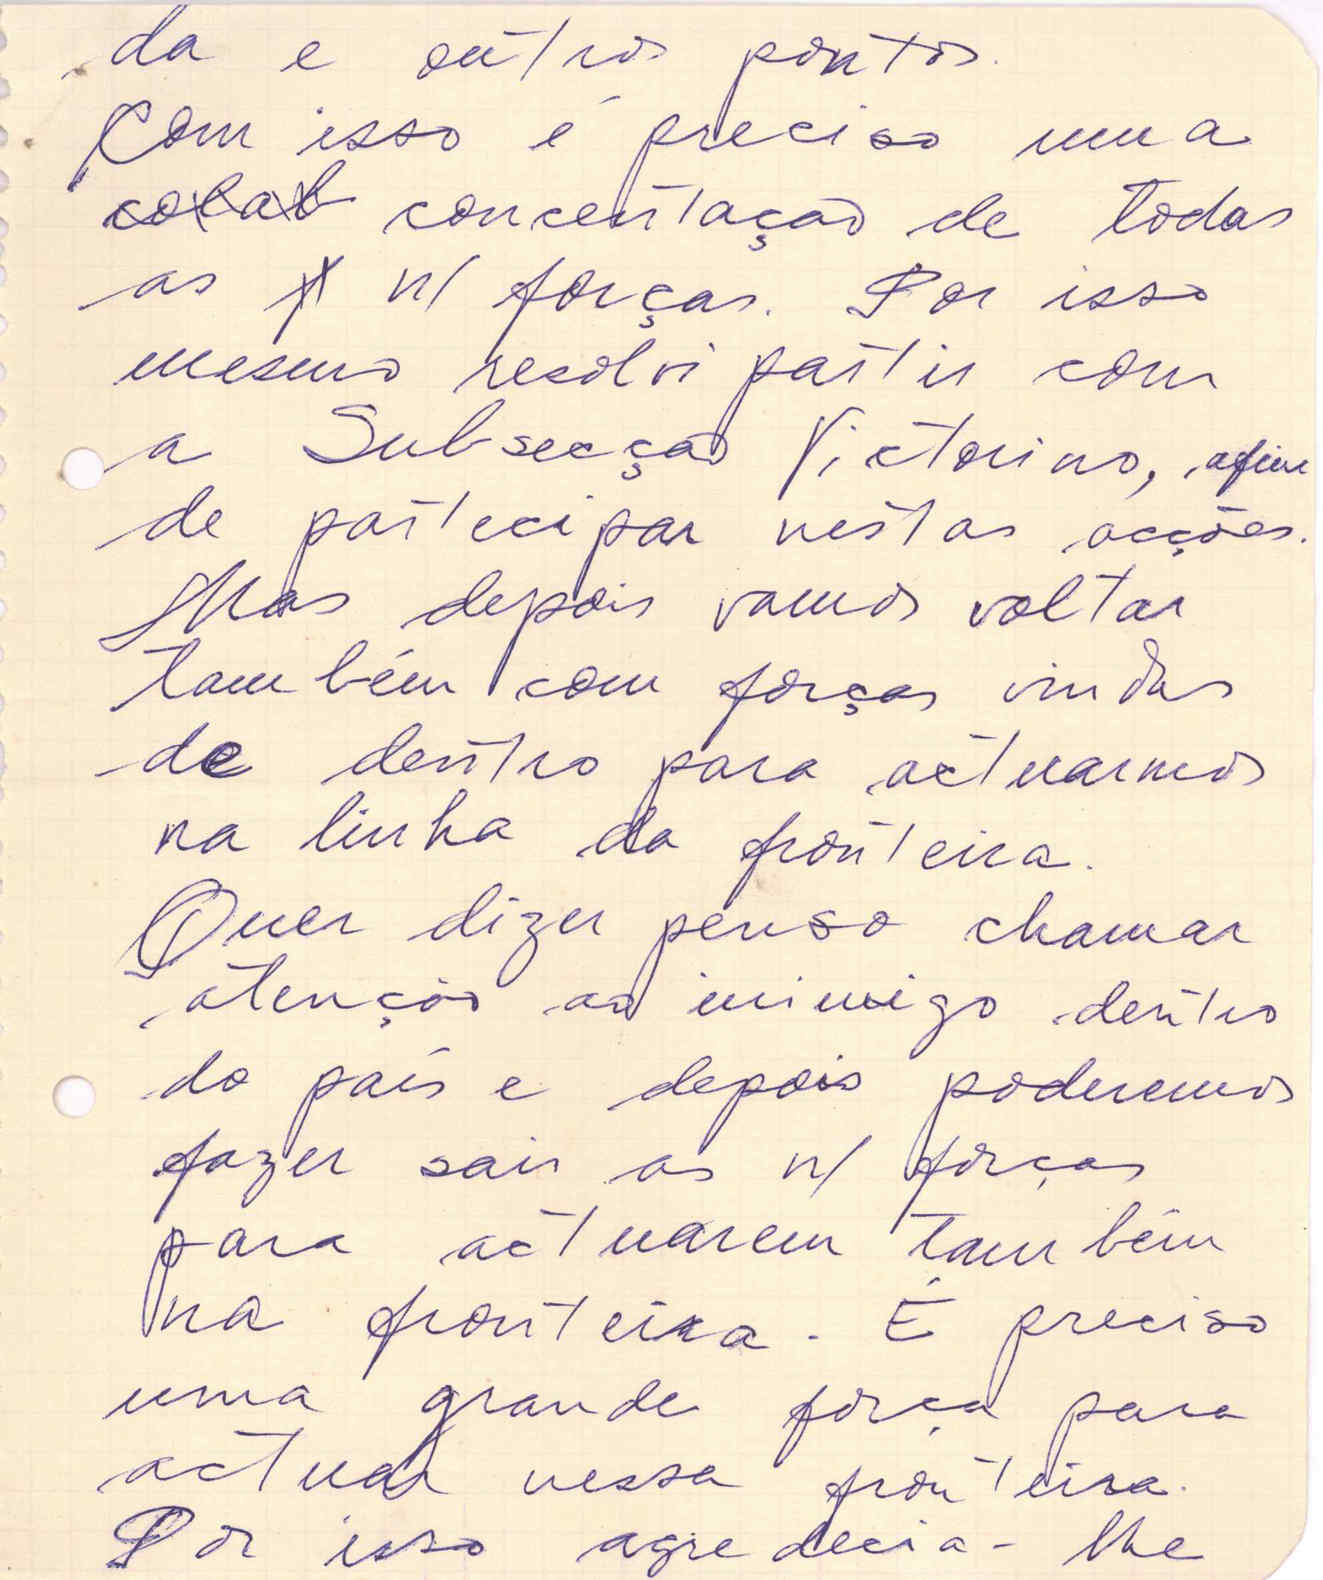 da e outros pontos.
Com isso é preciso uma
colab concentação de todas
as n/ forças. Por isso
mesmo resolvi partir com
a Subsecção Victorino, afim
de partecipar nestas acções.
Mas depois vamos voltar
também com forças vindas
de dentro para actuarmos
na linha da fronteira.
Quer dizer penso chamar
atenção ao inimigo dentro
do país e depois poderemos
fazer sair as n/ forças
para actuarem também
na fronteira. É preciso
uma grande força para
actuar nessa fronteira.
Por isso agredecia-lhe